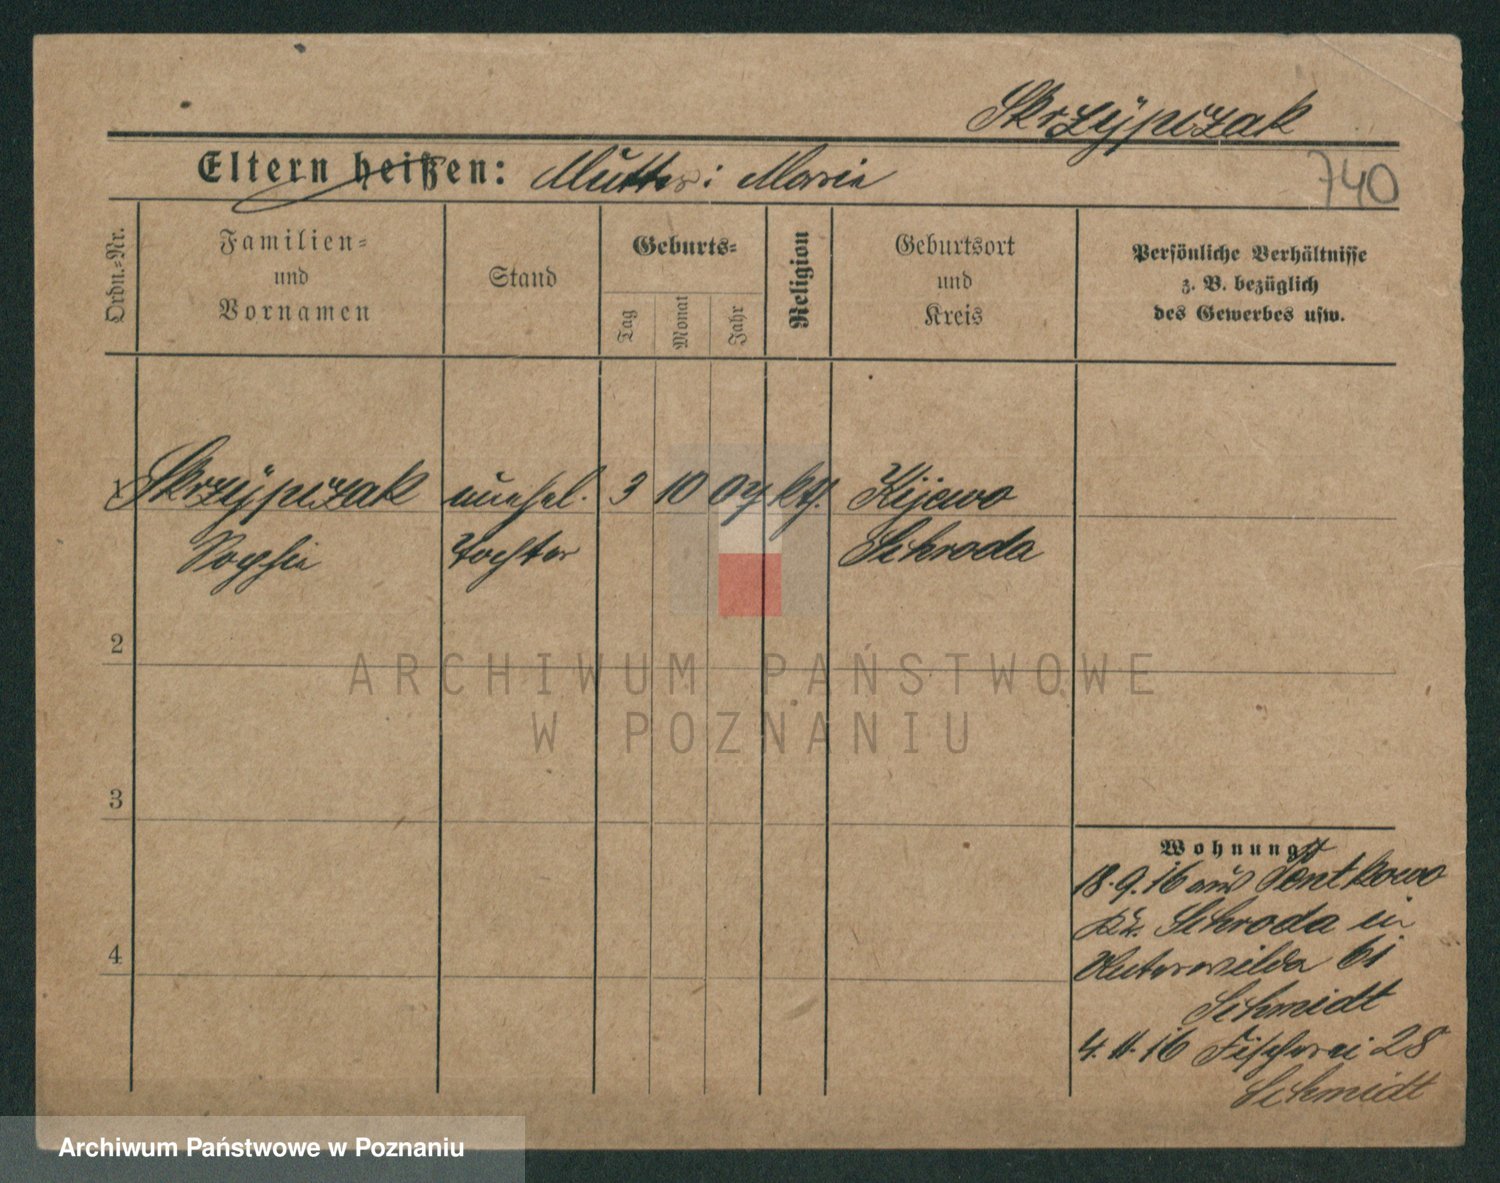 Skrzypczak
Eltern heißen: Mutter: Maria
740
Ordn.-Nr.
Familien-
und
Vornamen
Stand
Geburts-
Tag
Monat
Jahr
Religion
Geburtsort
und
Kreis
Persönliche Verhältnisse
z. B. bezüglich
des Gewerbes usw.
1 Skrzypczak unehel. 3 10 07 kth. Kijewo
Sophie Tochter Schroda
2
ARCHIWUM PAŃSTWOWE
W POZNANIU
3
4
Wohnung
18.9.16 aus Pontkowo
Kr. Schroda in
Unterwilda 61
Schmidt
4.11.16 Fischerei 28
Schmidt
Archiwum Państwowe w Poznaniu